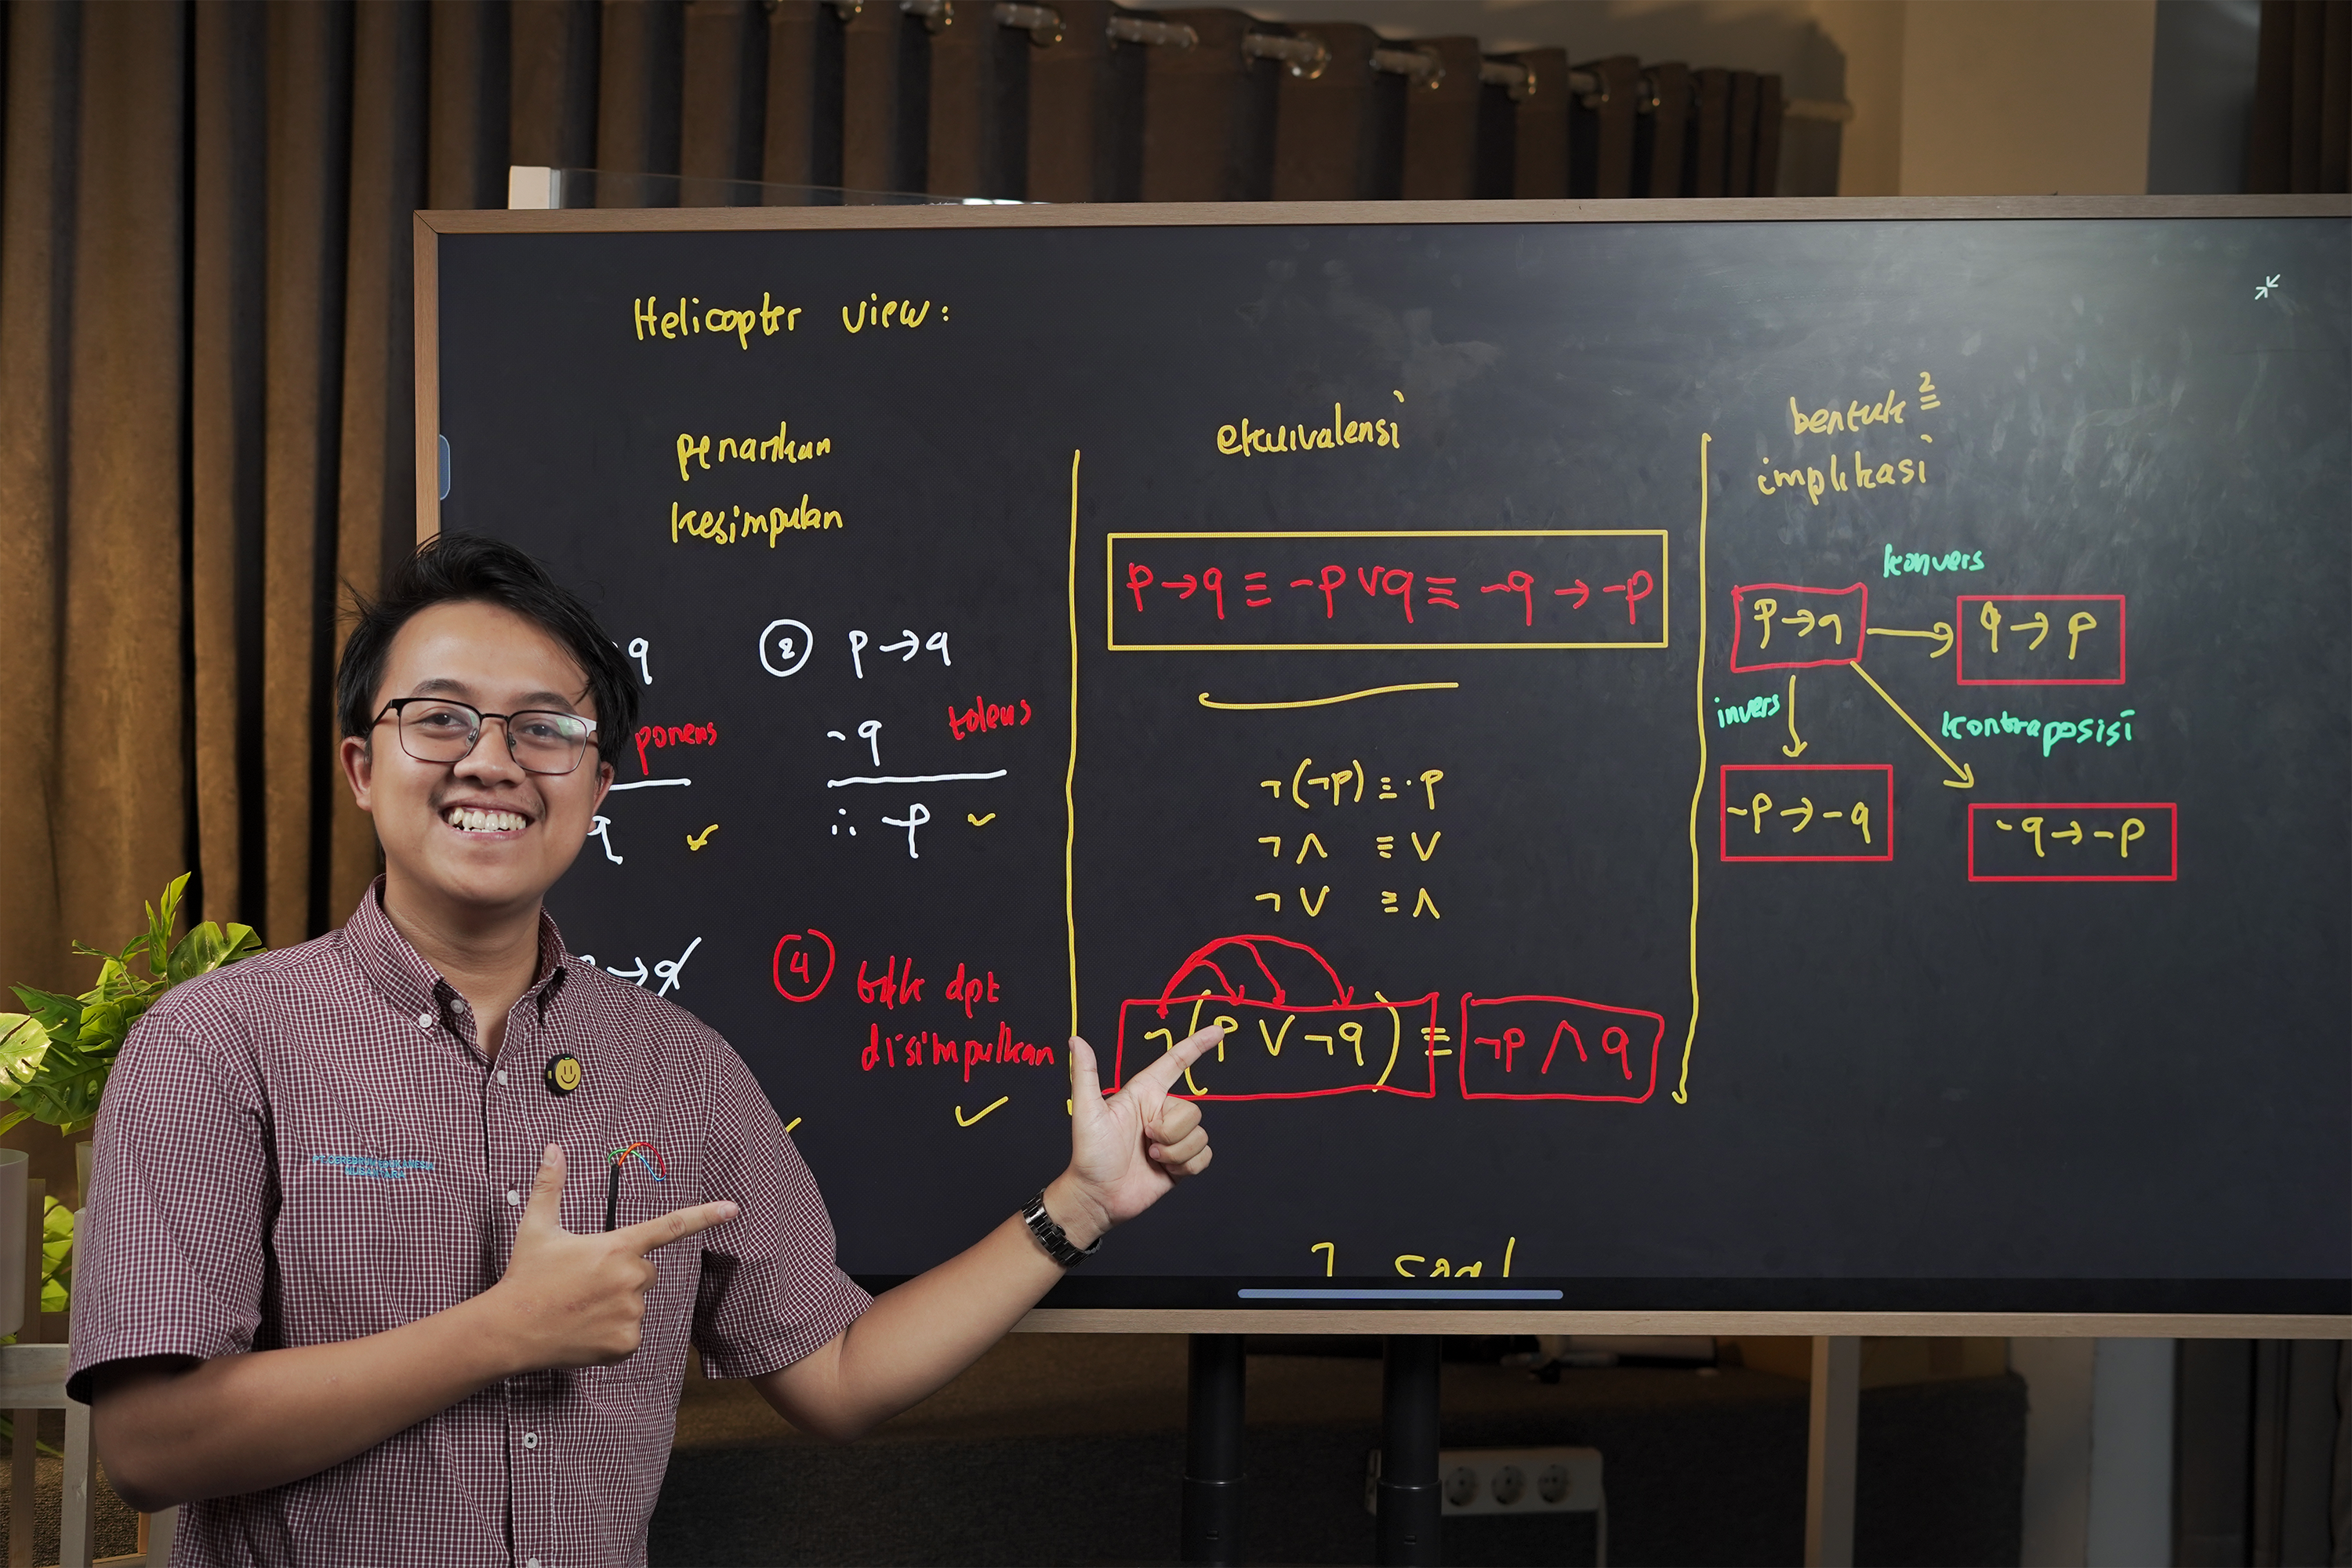 Helicopter view:
penarikan
kesimpulan
q
ponens
q
② p→q
¬q tolens
∴ ¬p
→q
④ tdk dpt
disimpulkan
ekuivalensi
p→q ≡ ¬p∨q ≡ ¬q→¬p
¬(¬p) ≡ p
¬∧ ≡ ∨
¬∨ ≡ ∧
¬(p∨¬q) ≡ ¬p∧q
soal
bentuk²
implikasi
konvers
p→q → q→p
invers
kontraposisi
¬p→¬q
¬q→¬p